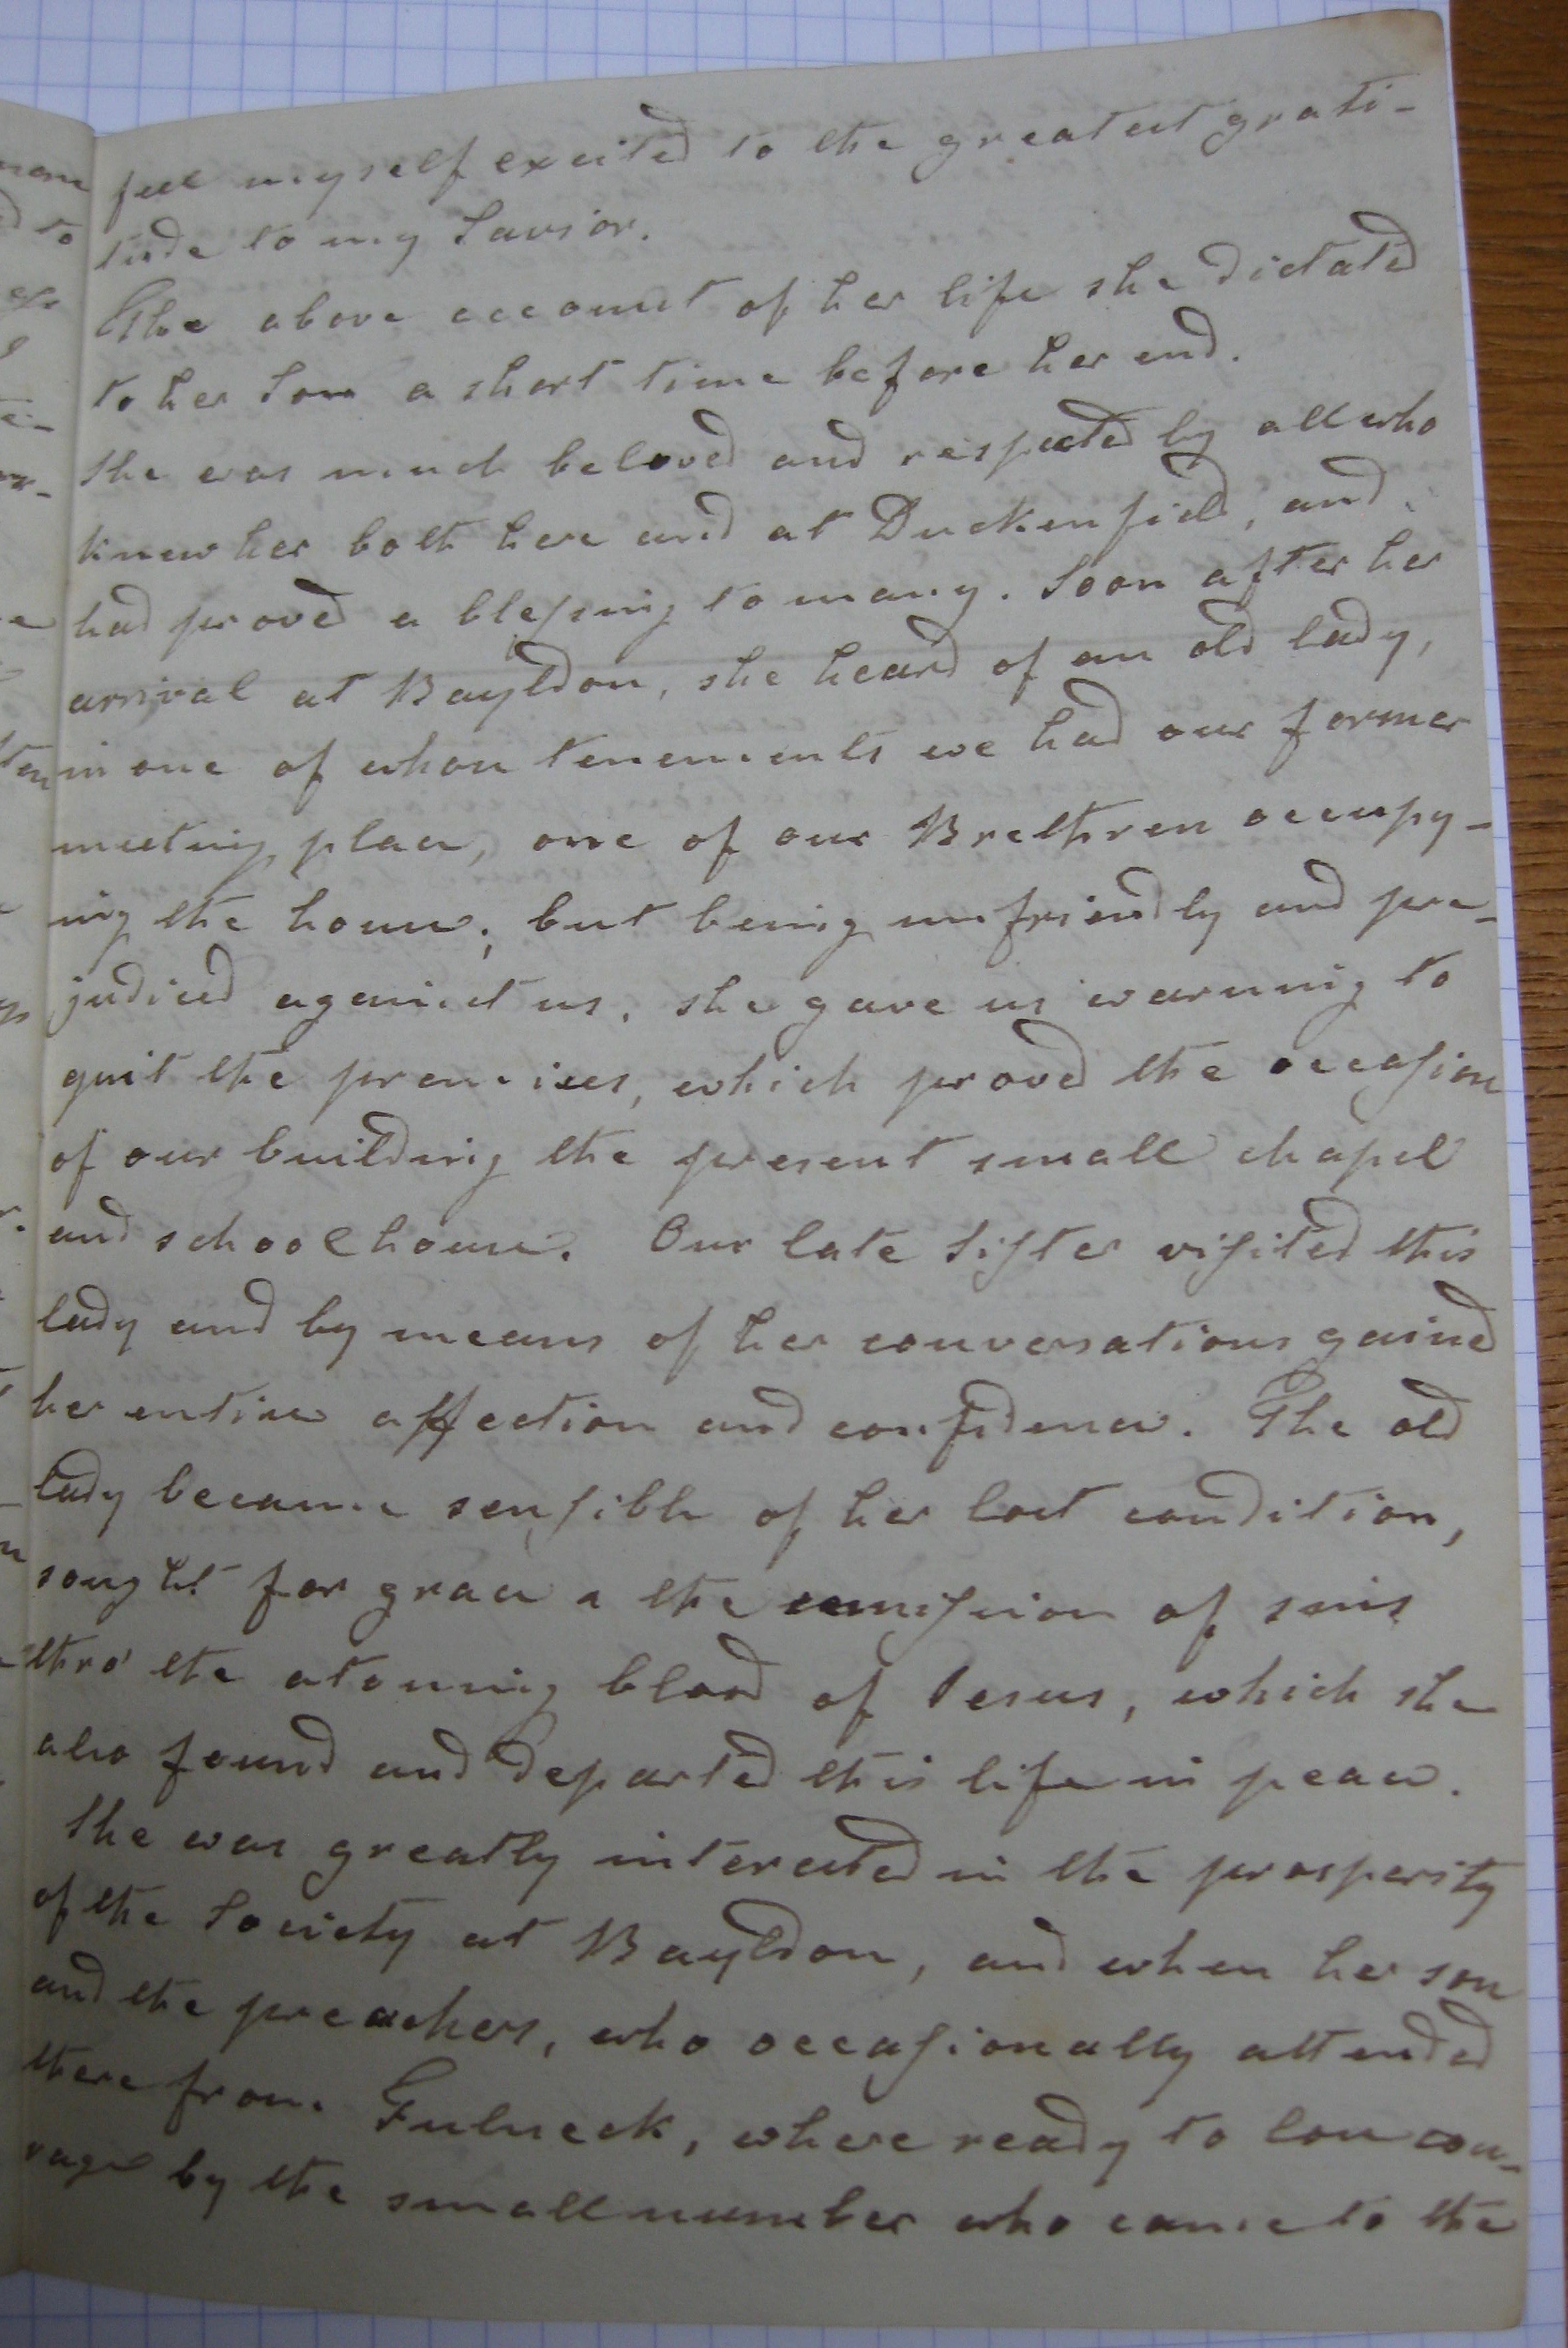 feel myself excited to the greatest grati-
tude to my Savior.
The above account of her life she dictated
to her Son a short time before her end.
She was much beloved and respected by all who
knew her both here and at Duckenfield, and
had proved a blessing to many. Soon after her
arrival at Bayldon, she heard of an old lady,
in one of whose tenements we had our former
meeting place, one of our Brethren occupy-
ing the house; but being unfriendly and pre-
judiced against us, she gave us warning to
quit the premises, which proved the occasion
of our building the present small chapel
and schoolhouse. Our late Sister visited this
lady and by means of her conversations gained
her entire affection and confidence. The old
lady became sensible of her lost condition,
sought for grace & the remission of sins
thro' the atoning blood of Jesus, which she
also found and departed this life in peace.
She was greatly interested in the prosperity
of the Society at Bayldon, and when her son
and the preachers, who occasionally attended
there from Fulneck, where ready to lose cou-
rage by the small number who came to the